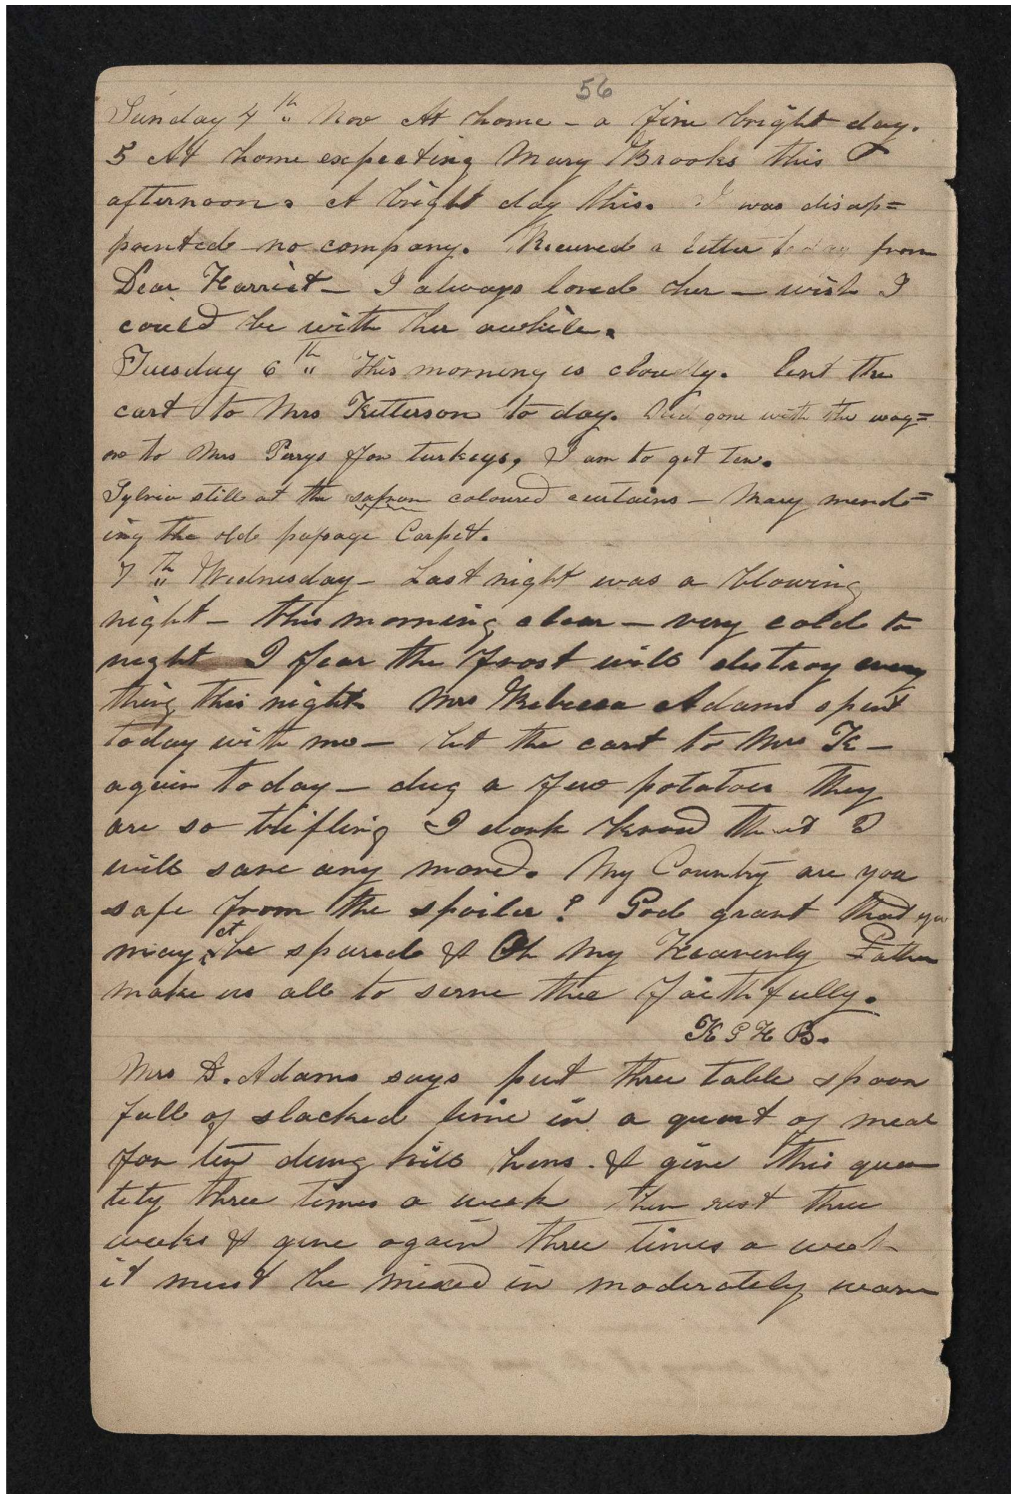 56
Sunday 4th Nov At home - a fine bright day.
5 At home expecting Mary Brooks this
afternoon. A bright day this. I was disap=
pointed - no company. Received a letter today from
Dear Harriet - I always loved her - wish I
could be with her awhile.
Tuesday 6th This morning is cloudy. lent the
cart to Mrs Kitterson to day. gone with the wag=
on to Mrs Perrys for turkeys, I am to get ten.
Sylvia still at the safron coloured curtains - Mary mend=
ing the old passage Carpet.
7th Wednesday - Last night was a blowing
night - this morning clear - very cold to
night I fear the frost will destroy every
thing this night. Mrs Rebecca Adams spent
today with me - let the cart to Mrs K -
again today - dug a few potatoes they
are so trifling I dont know that I
will save any more. My Country are you
safe from the spoiler? God grant that you
may be spared & Oh My Heavenly Father
make us all to serve thee faithfully.
K P H B.
Mrs D. Adams says put three table spoon
full of slacked lime in a quart of meal
for ten dung hill hens. & give this quan
tity three times a week then rest three
weeks & give again three times a week
it must be mixed in moderately warm